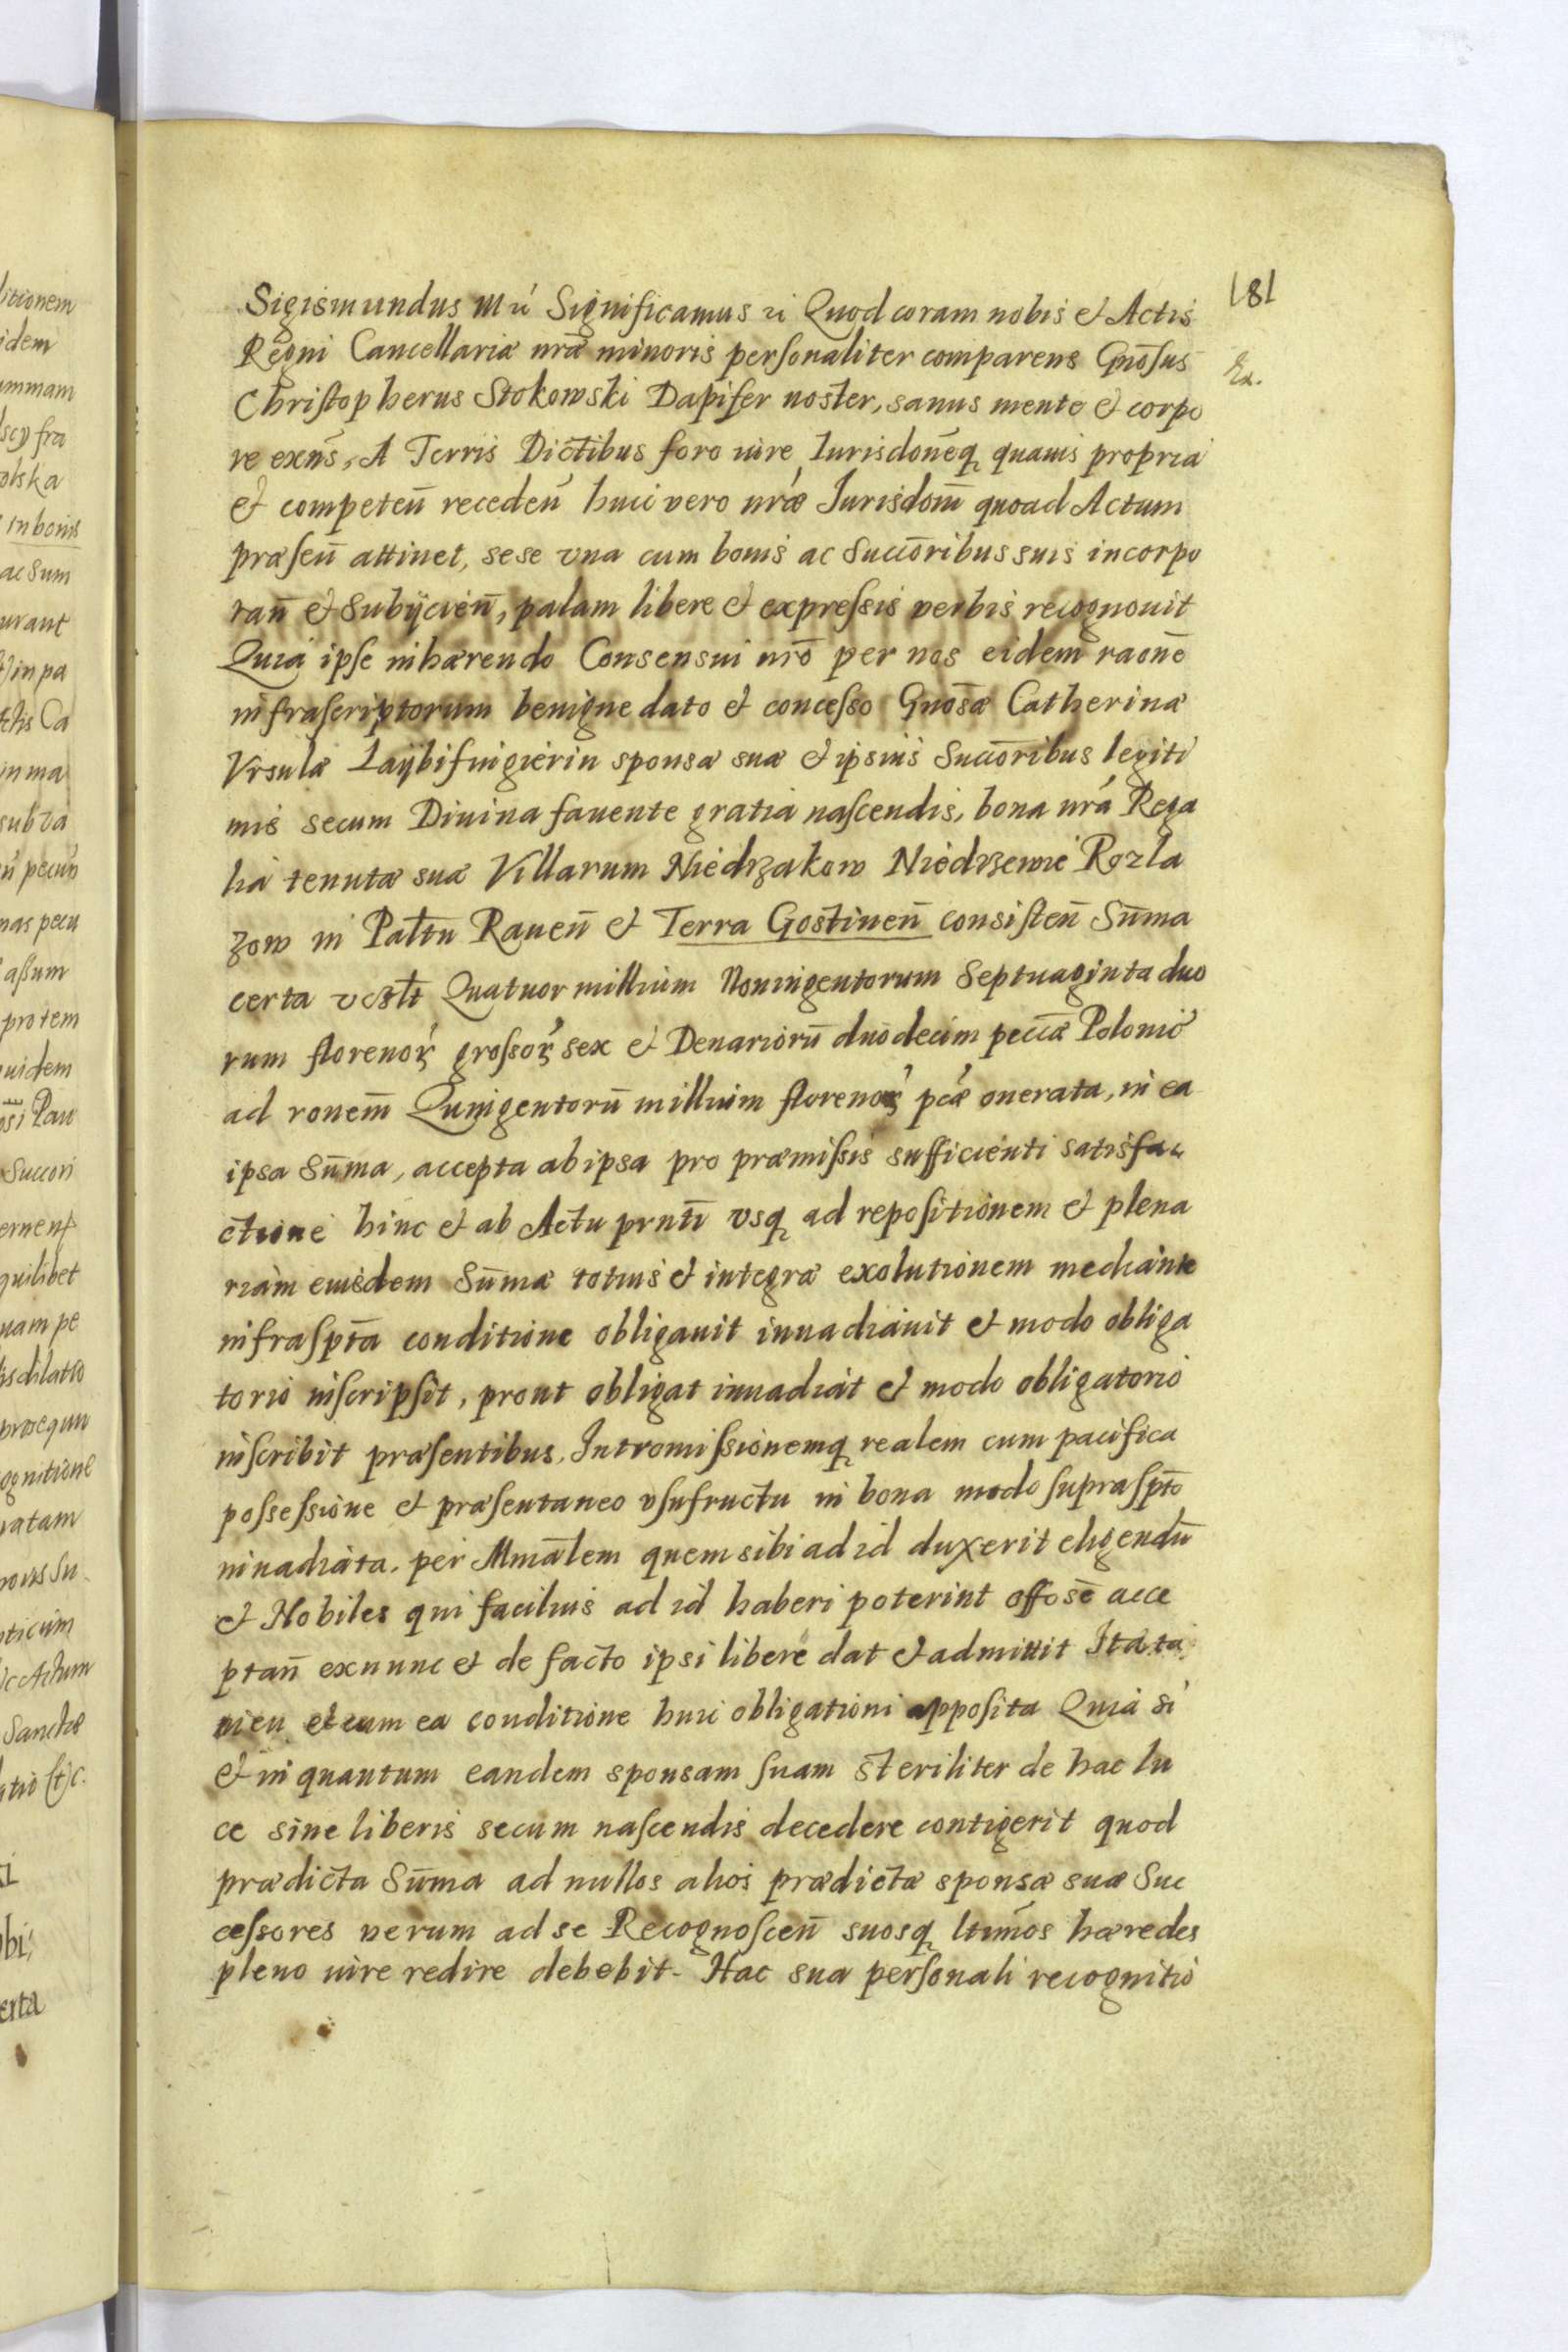 181
Sigismundus III ií Significamus ıi Quod coram nobis et Actis
Regni Cancellariæ nræ minoris personaliter comparens Gnōsus
Ex.
Christopherus Stokowski Dapifer noster, sanus mente et corpo
re exn̄s, A Terris Dictībus foro iure Iurisdonēq quauis propria
et competen̄ receden̄ huic vero nræ Jurisdom̄ quoad Actum
præsen̄ attinet, sese vna cum bonis ac Succōribus suis incorpo
ran̄ et Subijcien̄, palam libere et expressis verbis recognouit
Quia ipse inhærendo Consensui nrō per nos eidem raonē
infrascriptorum benigne dato et concesso Gnōsæ Catherinæ
Vrsulæ Laijbifingierin sponsæ suæ et ipsius Succōribus legiti
mis secum Diuina fauente gratia nascendis, bona nrá Rega
lia tenutæ suæ Villarum Niedrzakow Niedrzewie Rozla
zow in Paltū Rauen̄ et Terra Gostinen̄ consisten̄ Sūma
certa vczlt Quatuor millium Noningentorum Septuaginta duo
rum florenor grossor sex et Denariorū duodecim peccæ Polonic
ad ronem̄ Quingentorū millium florenor pcæ onerata, in ea
ipsa Sūma, accepta ab ipsa pro præmissis sufficienti satisfa
ctione hinc et ab Actu prntī vsq ad repositionem et plena
riam eiusdem Sūmæ totius et integræ exolutionem mediante
infrasptā conditione obligauit inuadiauit et modo obliga
torio inscripsit, prout obligat inuadiat et modo obligatorio
inscribit præsentibus, Intromissionemq realem cum pacifica
possessione et præsentaneo vsufructu in bona modo supraspto
inuadiata. per Mmālem quem sibi ad id duxerit eligendū
et Nobiles qui facilius ad id haberi poterint offosē acce
ptan̄ exnunc et de facto ipsi libere dat et admittit Ita ta
men et cum ea conditione huic obligationi apposita Quia si
et in quantum eandem sponsam suam steriliter de hac lu
ce sine liberis secum nascendis decedere contigerit quod
prædicta Sūma ad nullos alios prædictæ sponsæ suæ Suc
cessores verum ad se Recognoscen̄ suosq ltīmos hæredes
pleno iure redire debebit. Hac sua personali recognitio